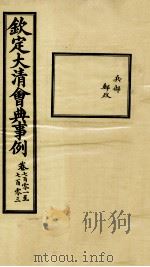 欽定大清會典事例
卷七百零一至
七百零三
兵部
郵政